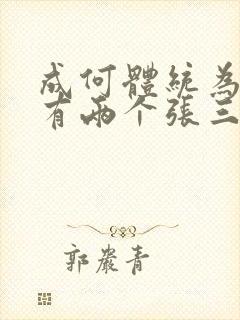 成何體統為
有兩个張三
郭嚴青